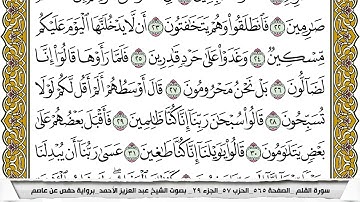 صَٰرِمِينَ ٢٢ فَٱنطَلَقُوا۟ وَهُمْ يَتَخَٰفَتُونَ ٢٣ أَن لَّا يَدْخُلَنَّهَا ٱلْيَوْمَ عَلَيْكُم
مِّسْكِينٌ ٢٤ وَغَدَوْا۟ عَلَىٰ حَرْدٍ قَٰدِرِينَ ٢٥ فَلَمَّا رَأَوْهَا قَالُوٓا۟ إِنَّا
لَضَآلُّونَ ٢٦ بَلْ نَحْنُ مَحْرُومُونَ ٢٧ قَالَ أَوْسَطُهُمْ أَلَمْ أَقُل لَّكُمْ لَوْلَا
تُسَبِّحُونَ ٢٨ قَالُوا۟ سُبْحَٰنَ رَبِّنَآ إِنَّا كُنَّا ظَٰلِمِينَ ٢٩ فَأَقْبَلَ بَعْضُهُمْ عَلَىٰ
بَعْضٍ يَتَلَٰوَمُونَ ٣٠ قَالُوا۟ يَٰوَيْلَنَآ إِنَّا كُنَّا طَٰغِينَ ٣١ عَسَىٰ رَبُّنَآ أَن يُبْدِلَنَا
سورة القلم _ الصفحة ٥٦٥_ الحزب ٥٧_ الجزء ٢٩ _ بصوت الشيخ عبد العزيز الأحمد _برواية حفص عن عاصم